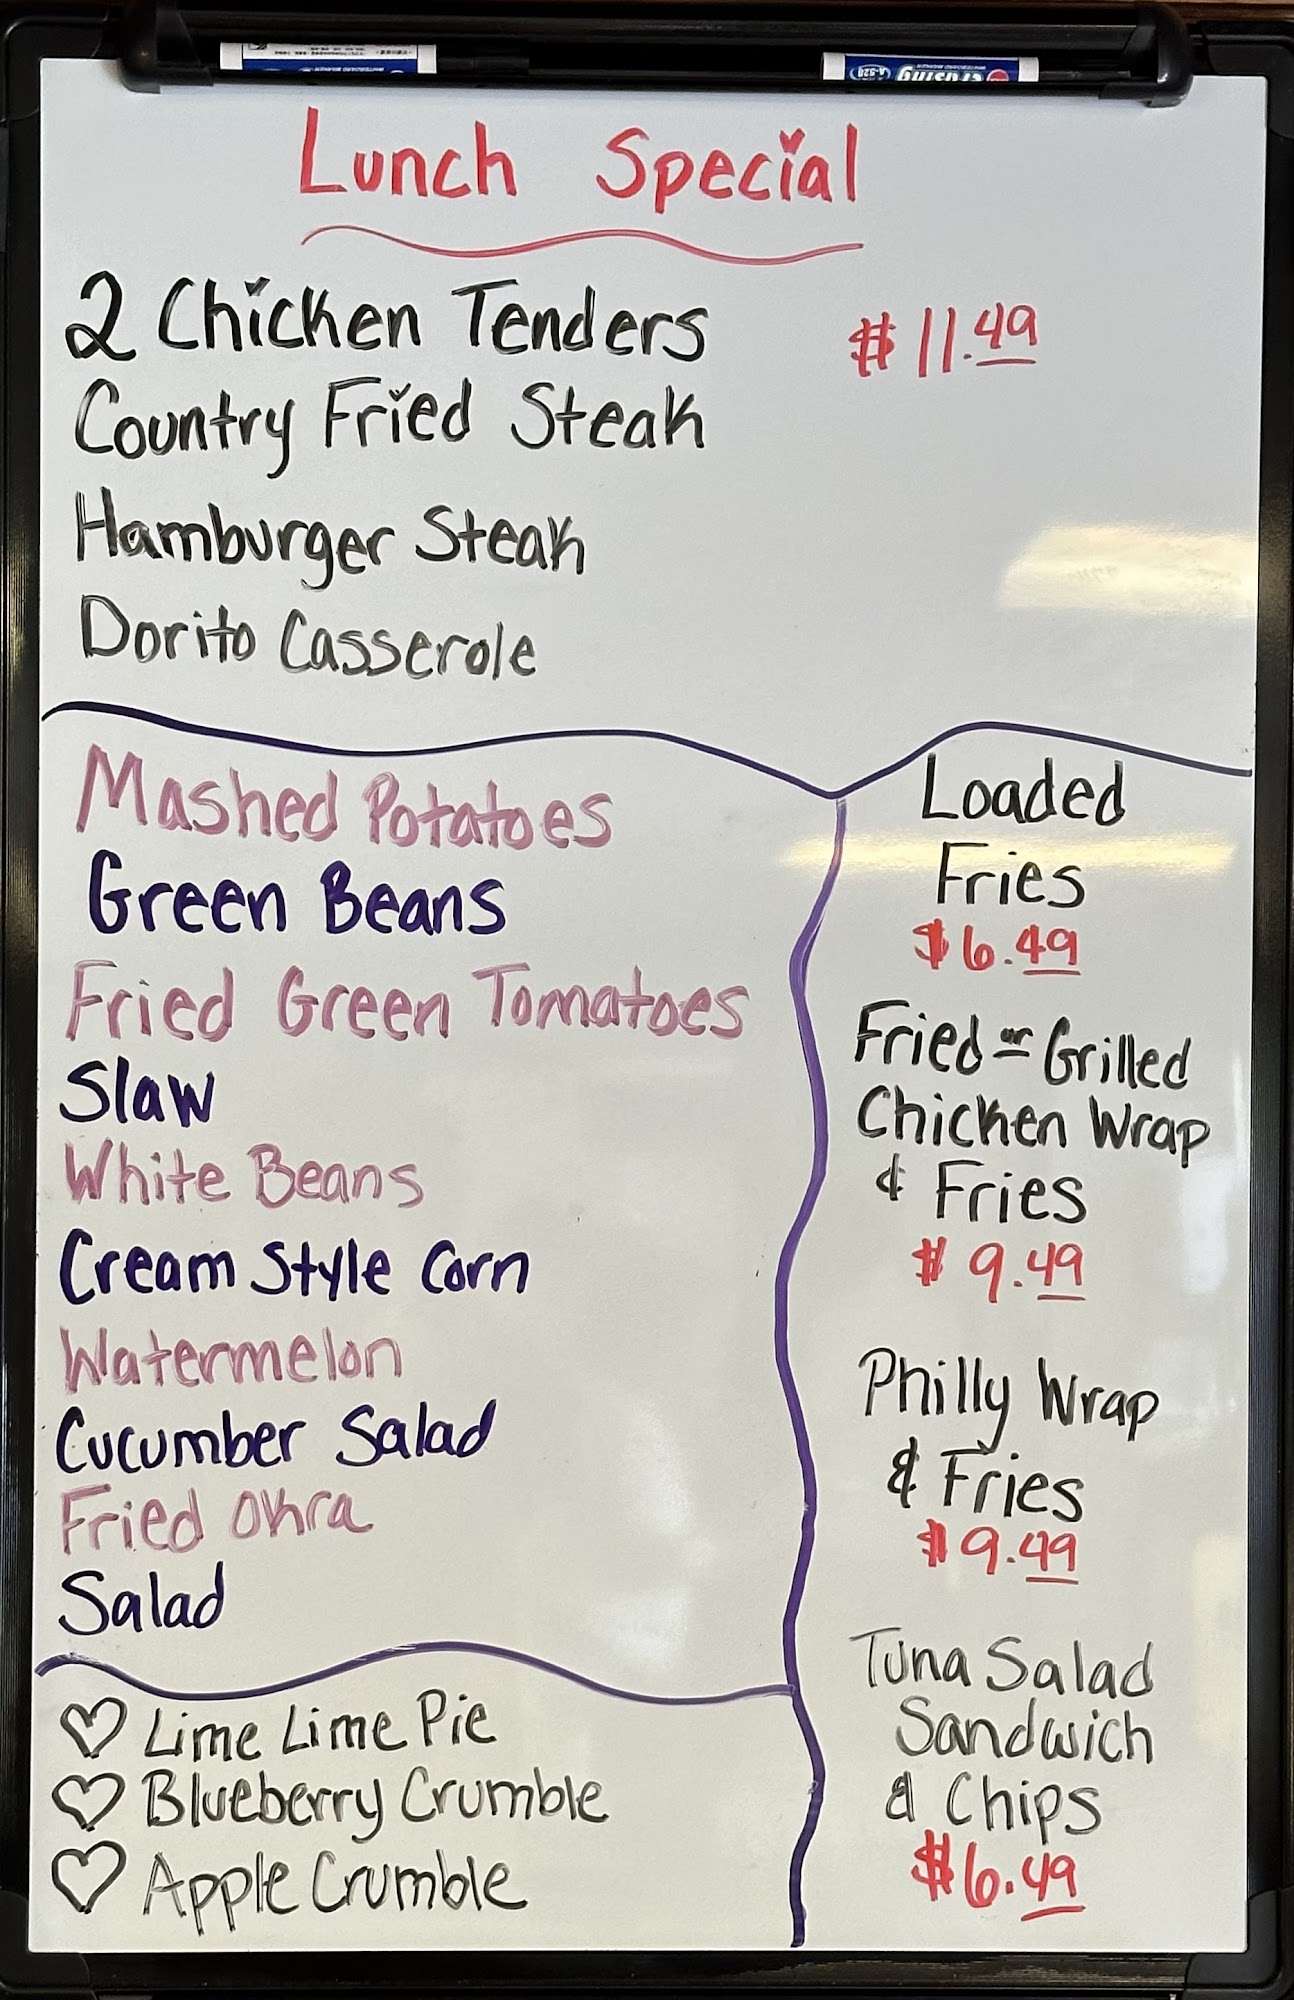 Lunch Special
2 Chicken Tenders $11.49
Country Fried Steak
Hamburger Steak
Dorito Casserole
Mashed Potatoes
Green Beans
Fried Green Tomatoes
Slaw
White Beans
Cream Style Corn
Watermelon
Cucumber Salad
Fried Okra
Salad
Lime Lime Pie
Blueberry Crumble
Apple Crumble
Loaded
Fries
$6.49
Fried or Grilled
Chicken Wrap
& Fries
$9.49
Philly Wrap
& Fries
$9.49
Tuna Salad
Sandwich
& Chips
$6.49